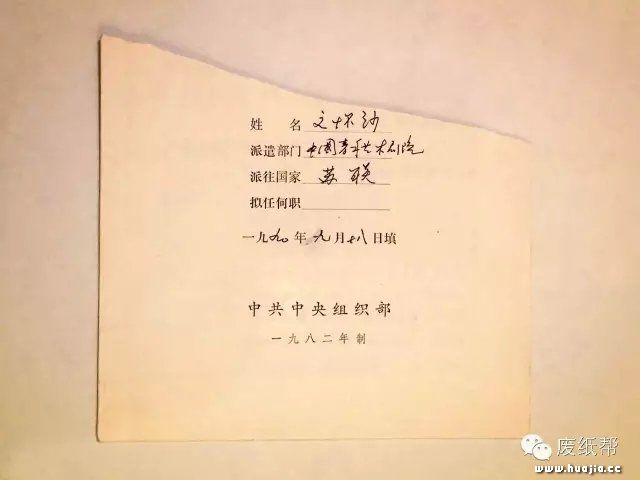 姓 名 文怀沙
派遣部门 中国青年艺术剧院
派往国家 苏联
拟任何职
一九九〇年九月十八日填
中共中央组织部
一九八二年制
废纸帮
www.huajia.cc